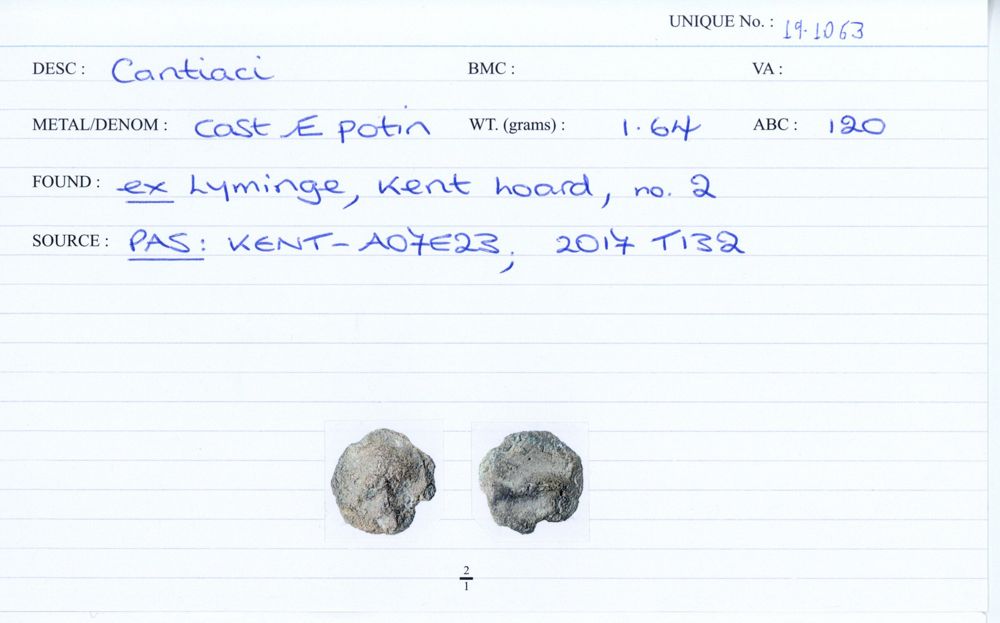 UNIQUE No. : 19.1063
DESC : Cantiaci BMC : VA :
METAL/DENOM : Cast Æ potin WT. (grams) : 1.64 ABC : 120
FOUND : ex Lyminge, Kent hoard, no. 2
SOURCE : PAS: KENT-A07E23, 2017 T132
2
1